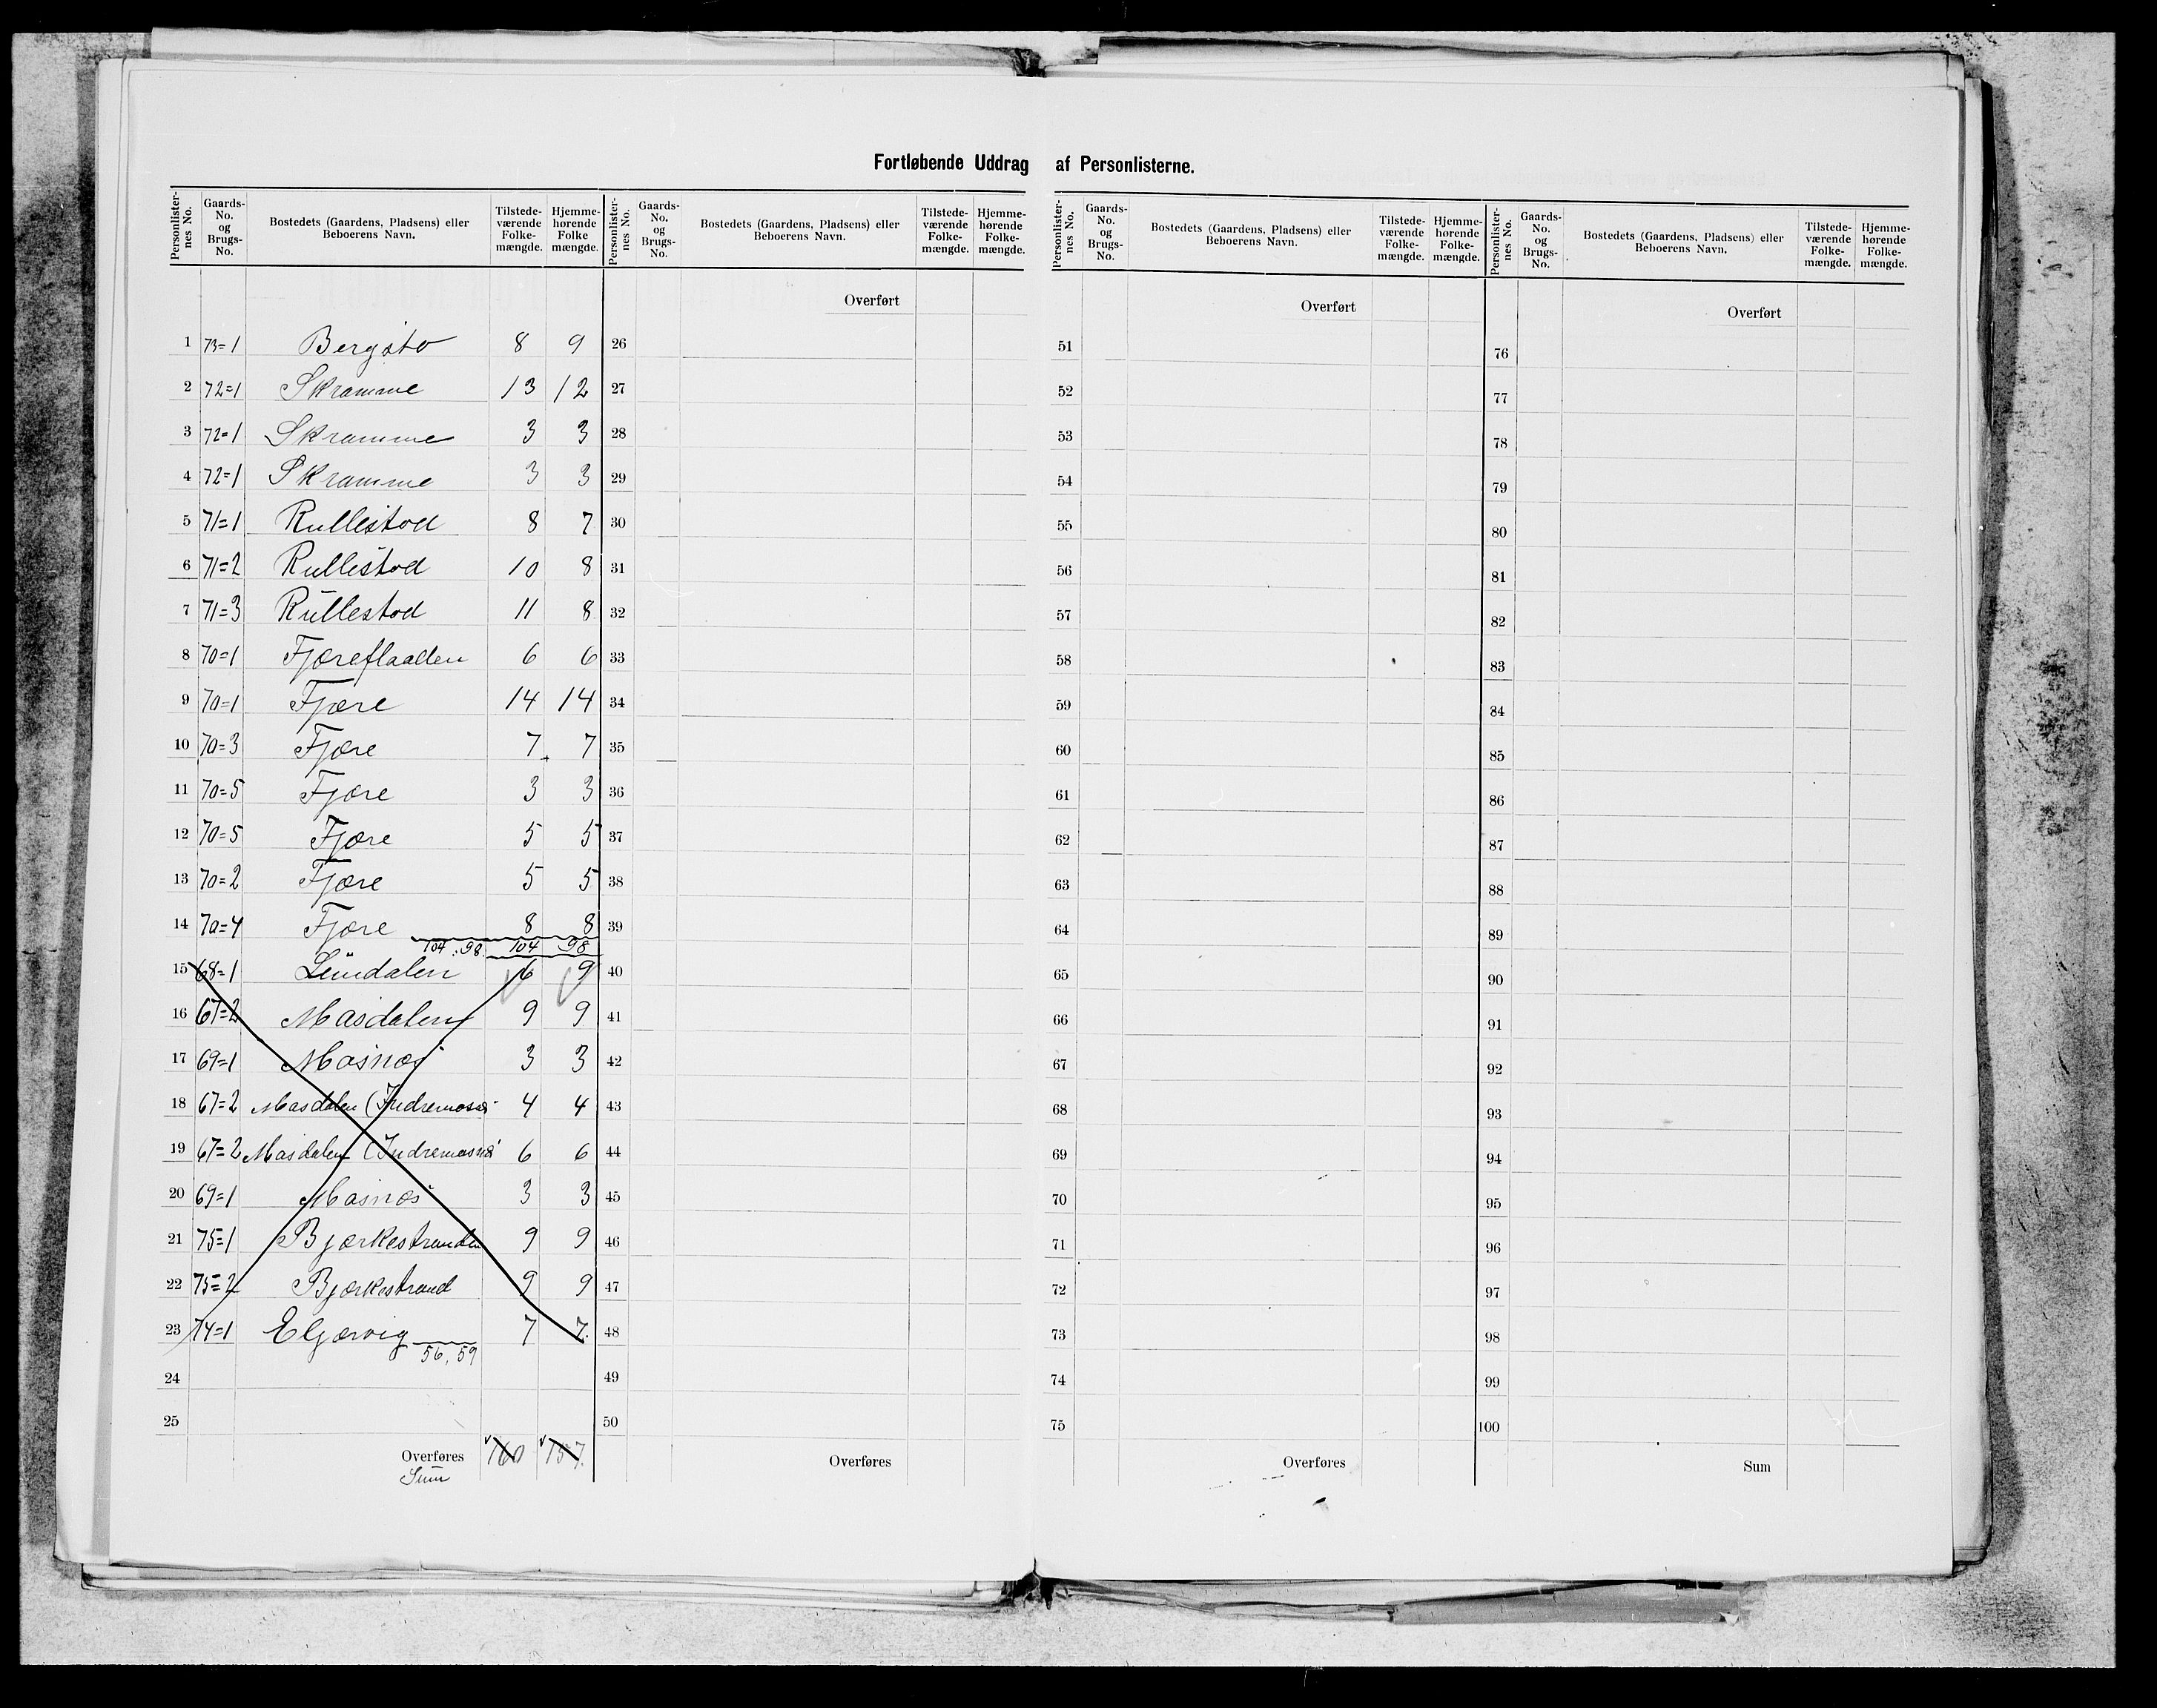 Fortløbende Uddrag af Personlisterne.
Personlister-nes No. Gaards-No. og Brugs-No. Bostedets (Gaardens, Pladsens) eller Beboerens Navn. Tilstede-værende Folke-mængde. Hjemme-hørende Folke mængde. Personlister-nes No. Gaards-No. og Brugs-No. Bostedets (Gaardens, Pladsens) eller Beboerens Navn. Tilstede-værende Folke-mængde. Hjemme-hørende Folke-mængde. Personlister-nes No. Gaards-No. og Brugs-No. Bostedets (Gaardens, Pladsens) eller Beboerens Navn. Tilstede-værende Folke-mængde. Hjemme-hørende Folke-mængde. Personlister-nes No. Gaards-No. og Brugs-No. Bostedets (Gaardens, Pladsens) eller Beboerens Navn. Tilstede-værende Folke-mængde. Hjemme-hørende Folke-mængde.
Overført Overført Overført
1 73=1 Bergstø 8 9 26 51 76
2 72=1 Skramme 13 12 27 52 77
3 72=1 Skramme 3 3 28 53 78
4 72=1 Skramme 3 3 29 54 79
5 71=1 Rullestad 8 7 30 55 80
6 71=2 Rullestad 10 8 31 56 81
7 71=3 Rullestad 11 8 32 57 82
8 70=1 Fjæreflaaten 6 6 33 58 83
9 70=1 Fjære 14 14 34 59 84
10 70=3 Fjære 7 7 35 60 85
11 70=5 Fjære 3 3 36 61 86
12 70=5 Fjære 5 5 37 62 87
13 70=2 Fjære 5 5 38 63 88
14 70=4 Fjære 8 8 39 64 89
104 : 98 104 98
15 68=1 Lundalen 6 9 40 65 90
16 67=2 Masdalen 9 9 41 66 91
17 69=1 Masnæs 3 3 42 67 92
18 67=2 Masdalen (Indremosnæs 4 4 43 68 93
19 67=2 Masdalen (Indremosnæs 6 6 44 69 94
20 69=1 Masnæs 3 3 45 70 95
21 75=1 Bjærkestranden 9 9 46 71 96
22 75=2 Bjærkestrand 9 9 47 72 97
23 74=1 Eljarvig 7 7. 48 73 98
56, 59
24 49 74 99
25 50 75 100
Overføres 160 157. Overføres Overføres Sum
Sum